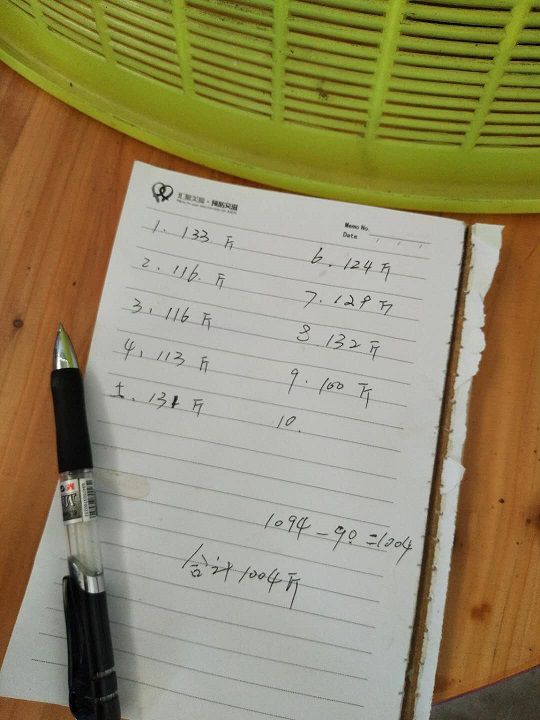 预防艾滋
Memo No.
Date
1. 133 斤
2. 116 斤
3. 116 斤
4. 113 斤
5. 131 斤
6. 124 斤
7. 129 斤
8 132 斤
9. 100 斤
10.
1094 - 90 = 1004
合计 1004 斤